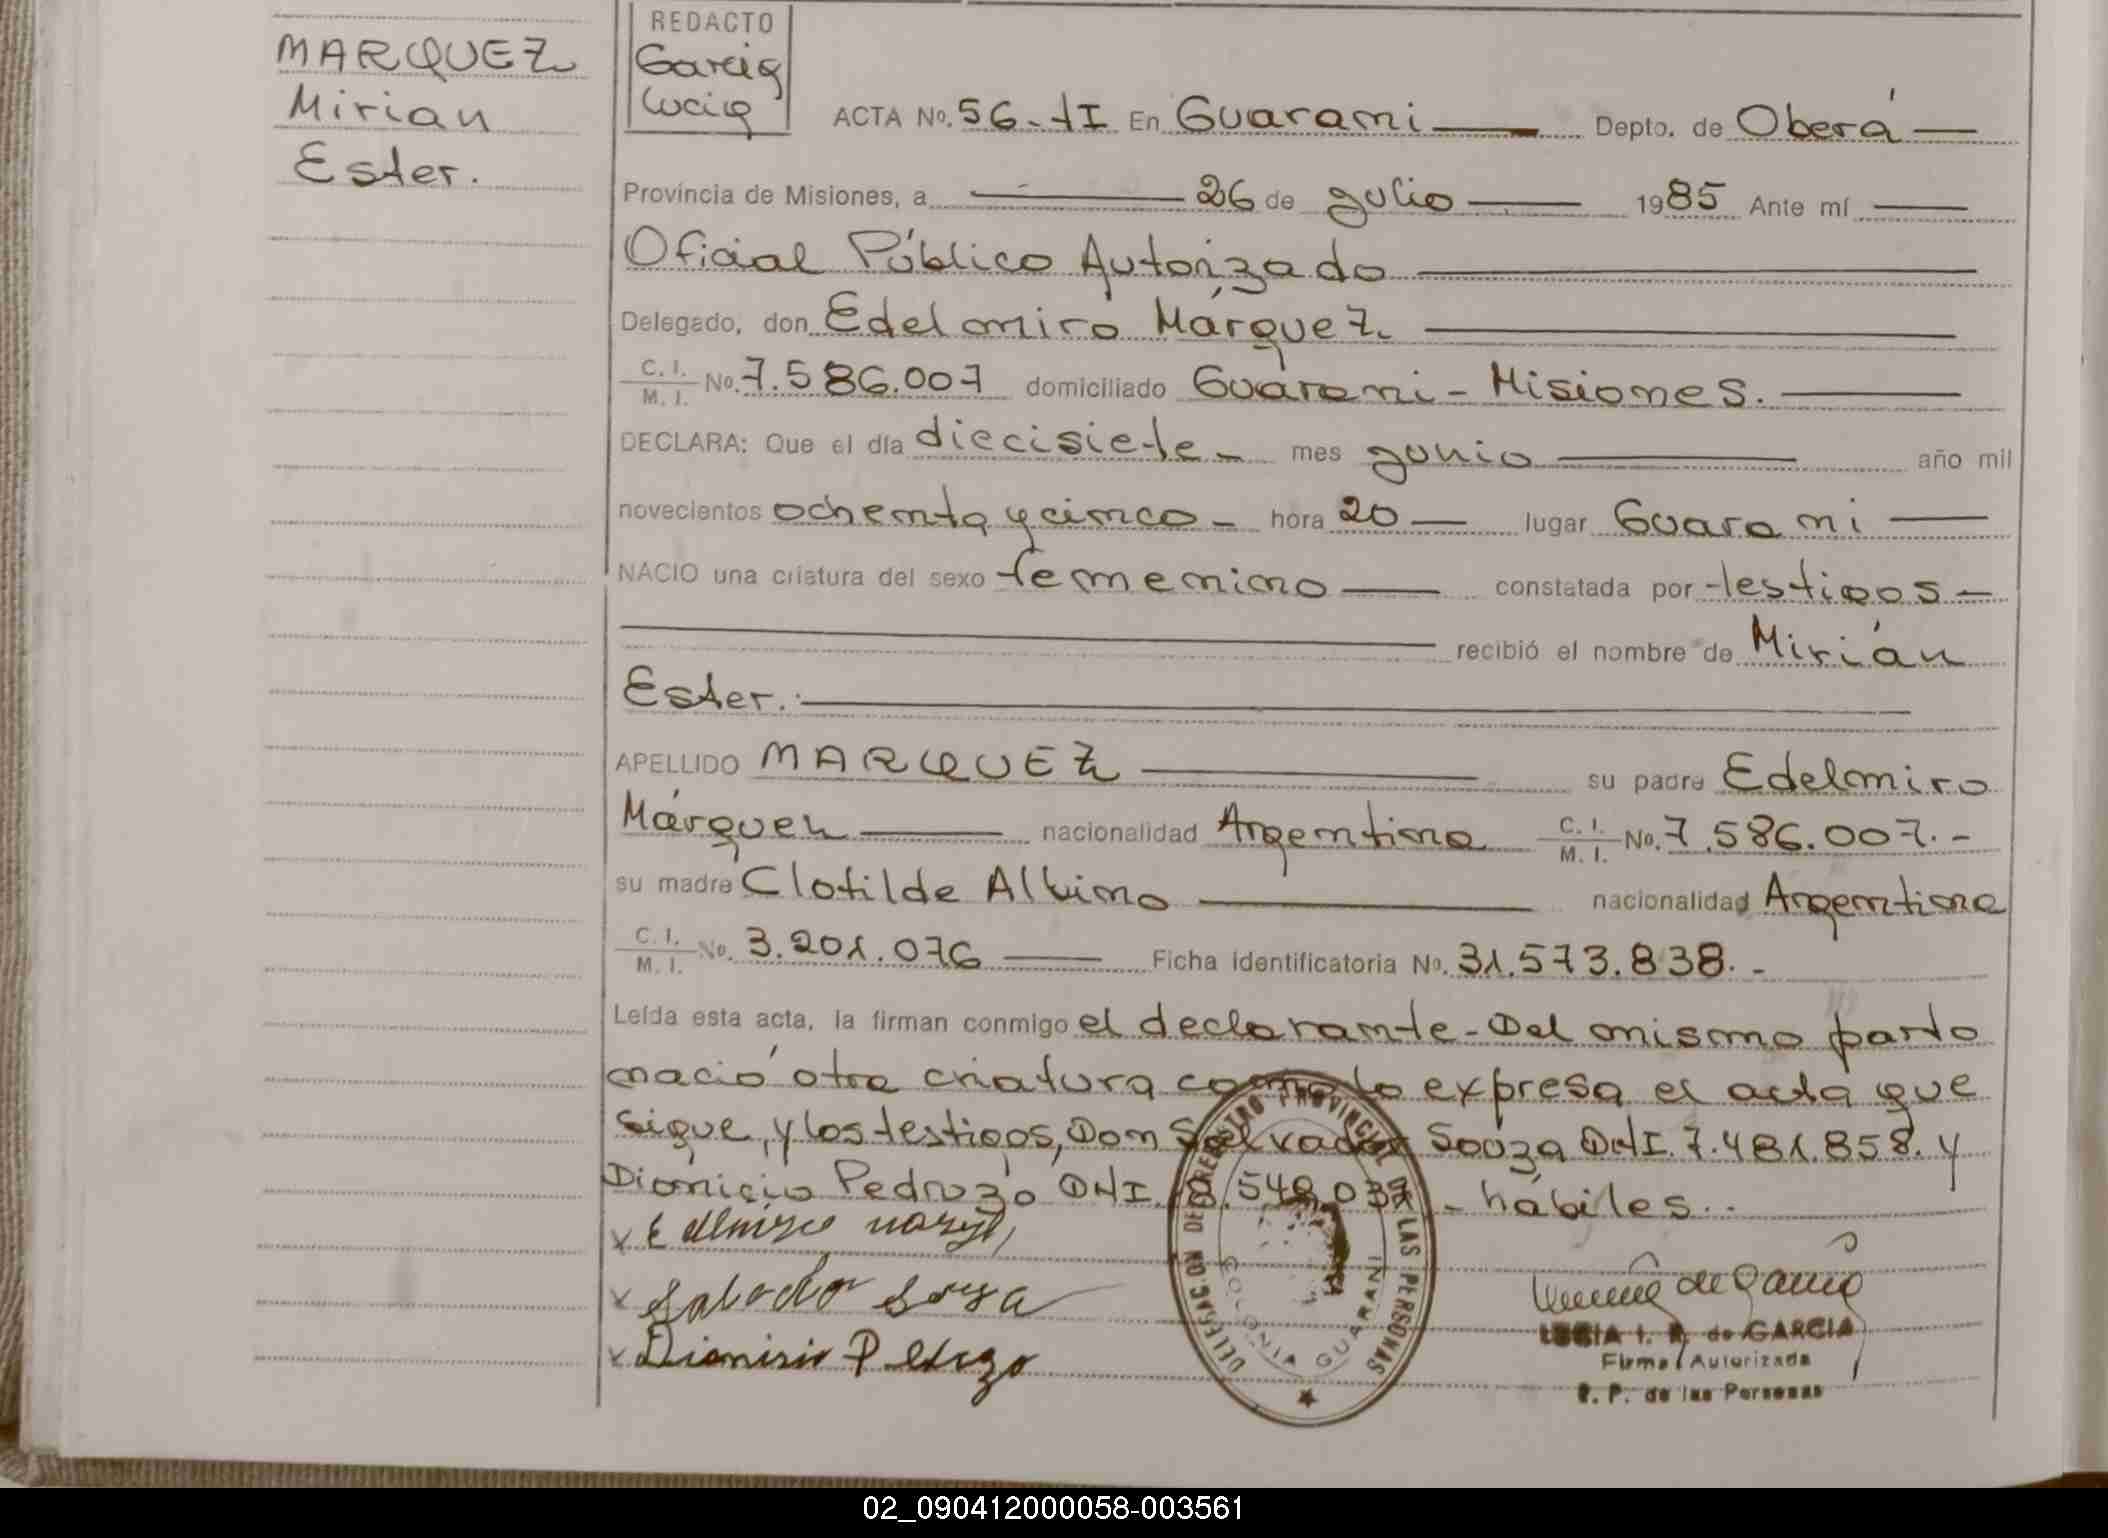 MARQUEZ
Mirian
Ester.
REDACTO
Garcia
Lucia
ACTA No. 56-tI En Guarani Depto. de Oberá
Provincia de Misiones, a 26 de julio 1985 Ante mí
Oficial Público Autorizado
Delegado, don Edelmiro Márquez
C. I. / M. I. No. 7.586.007 domiciliado Guarani - Misiones.
DECLARA: Que el día diecisiete - mes junio año mil
novecientos ochenta y cinco - hora 20 lugar Guarani
NACIO una criatura del sexo femenino constatada por testigos -
recibió el nombre de Mirián
Ester.
APELLIDO MARQUEZ su padre Edelmiro
Márquez nacionalidad Argentina C. I. / M. I. No. 7.586.007. -
su madre Clotilde Albino nacionalidad Argentina
C. I. / M. I. No. 3.201.076 Ficha identificatoria No. 31.573.838. -
Leída esta acta, la firman conmigo el declarante - Del mismo parto
nació otra criatura como lo expresa el acta que
sigue, y los testigos, Don Salvador Souza DNI. 7.481.858. y
Dionicio Pedrozo DNI. .548.037 - hábiles..
x
x Salvador Souza
x Dionisio Pedrozo
DELEGACION DEL REGISTRO PROVINCIAL DE LAS PERSONAS
COLONIA GUARANI
de Garcia
LUCIA I. R. de GARCIA
Firma Autorizada
R. P. de las Personas
02_090412000058-003561